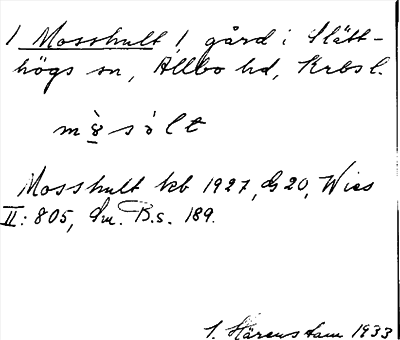 1 Mosshult 1 gård i Slätt-
högs sn, Allbo hd, Krbs l.
m s ò l t
Mosshult kb 1927, G 20, Wies
II: 805, Sm. B.s. 189.
1933